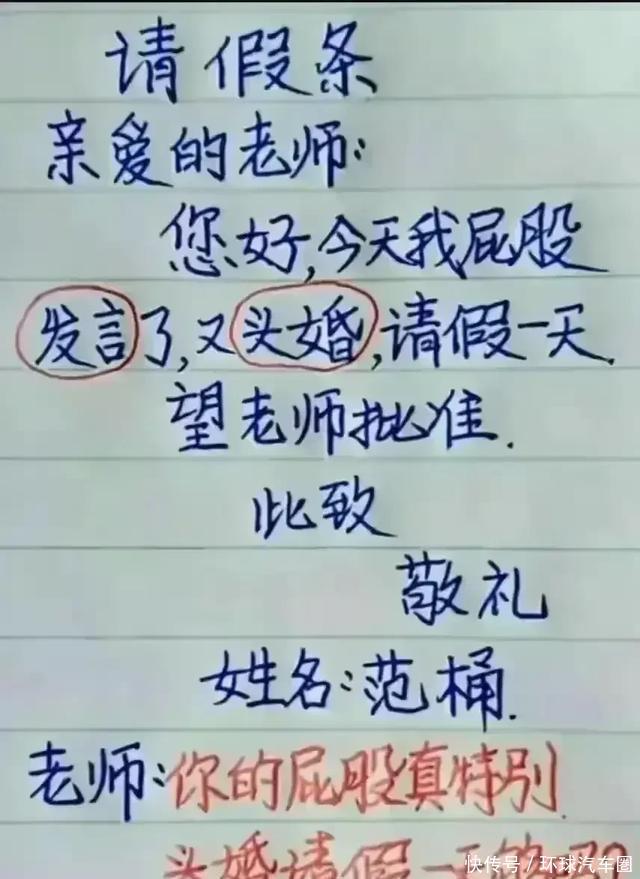 请假条
亲爱的老师:
您好,今天我屁股
发言了,又头婚,请假一天.
望老师批准.
此致
敬礼
姓名:范桶.
老师:你的屁股真特别.
头婚请假一天
快传号/环球汽车圈